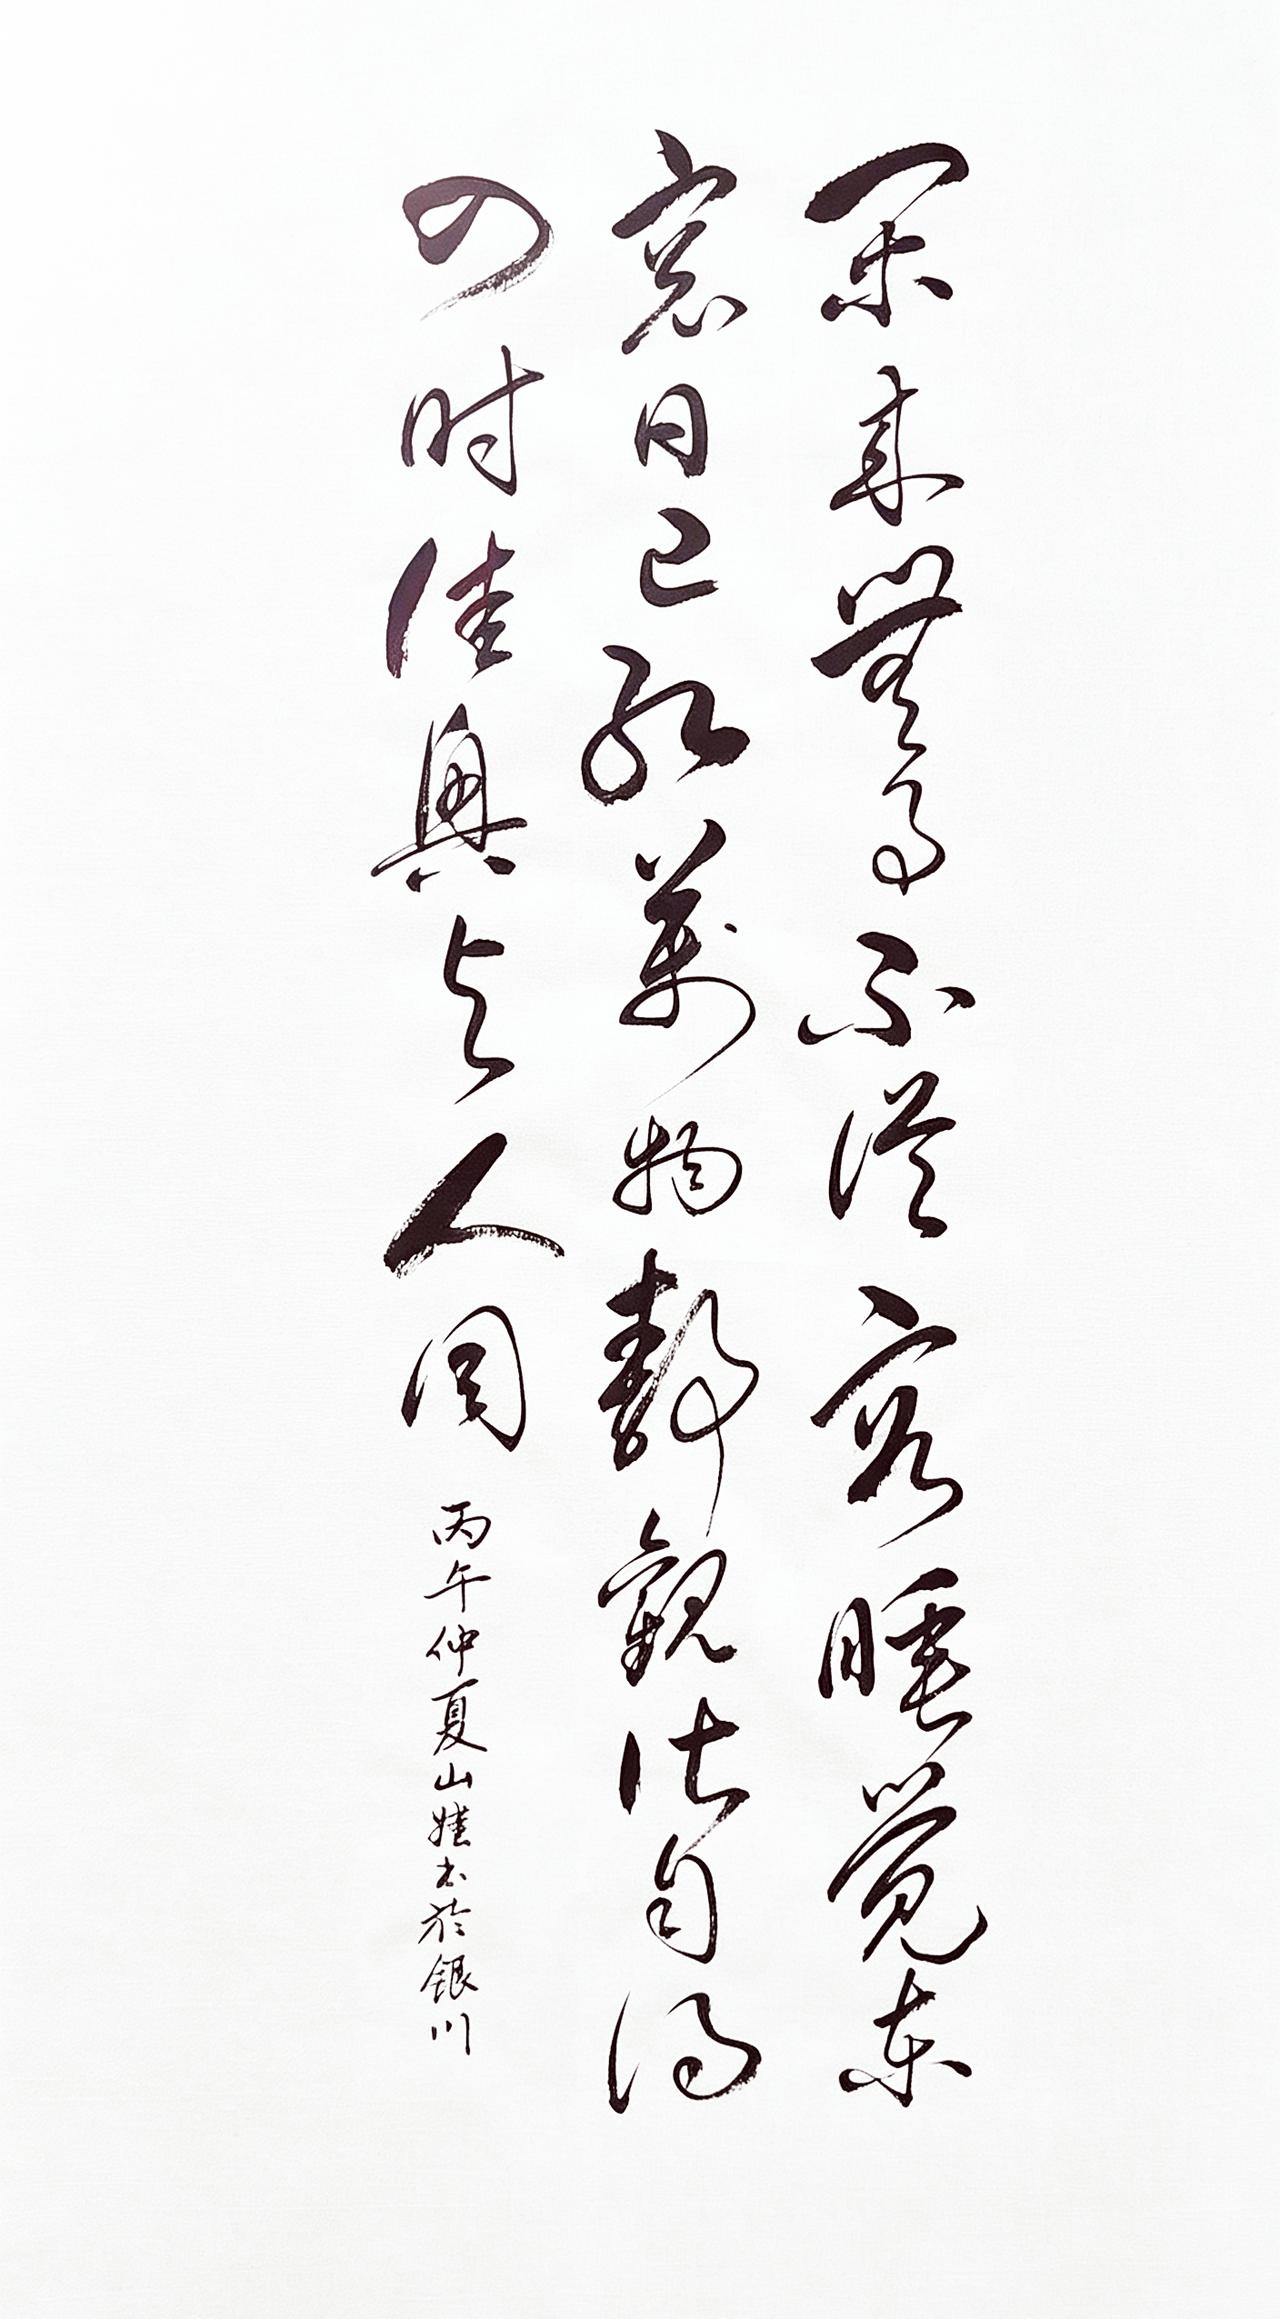 閑来無事不從容睡覺東
窗日已紅萬物靜觀皆自得
四时佳興与人同
丙午仲夏山娃书於銀川